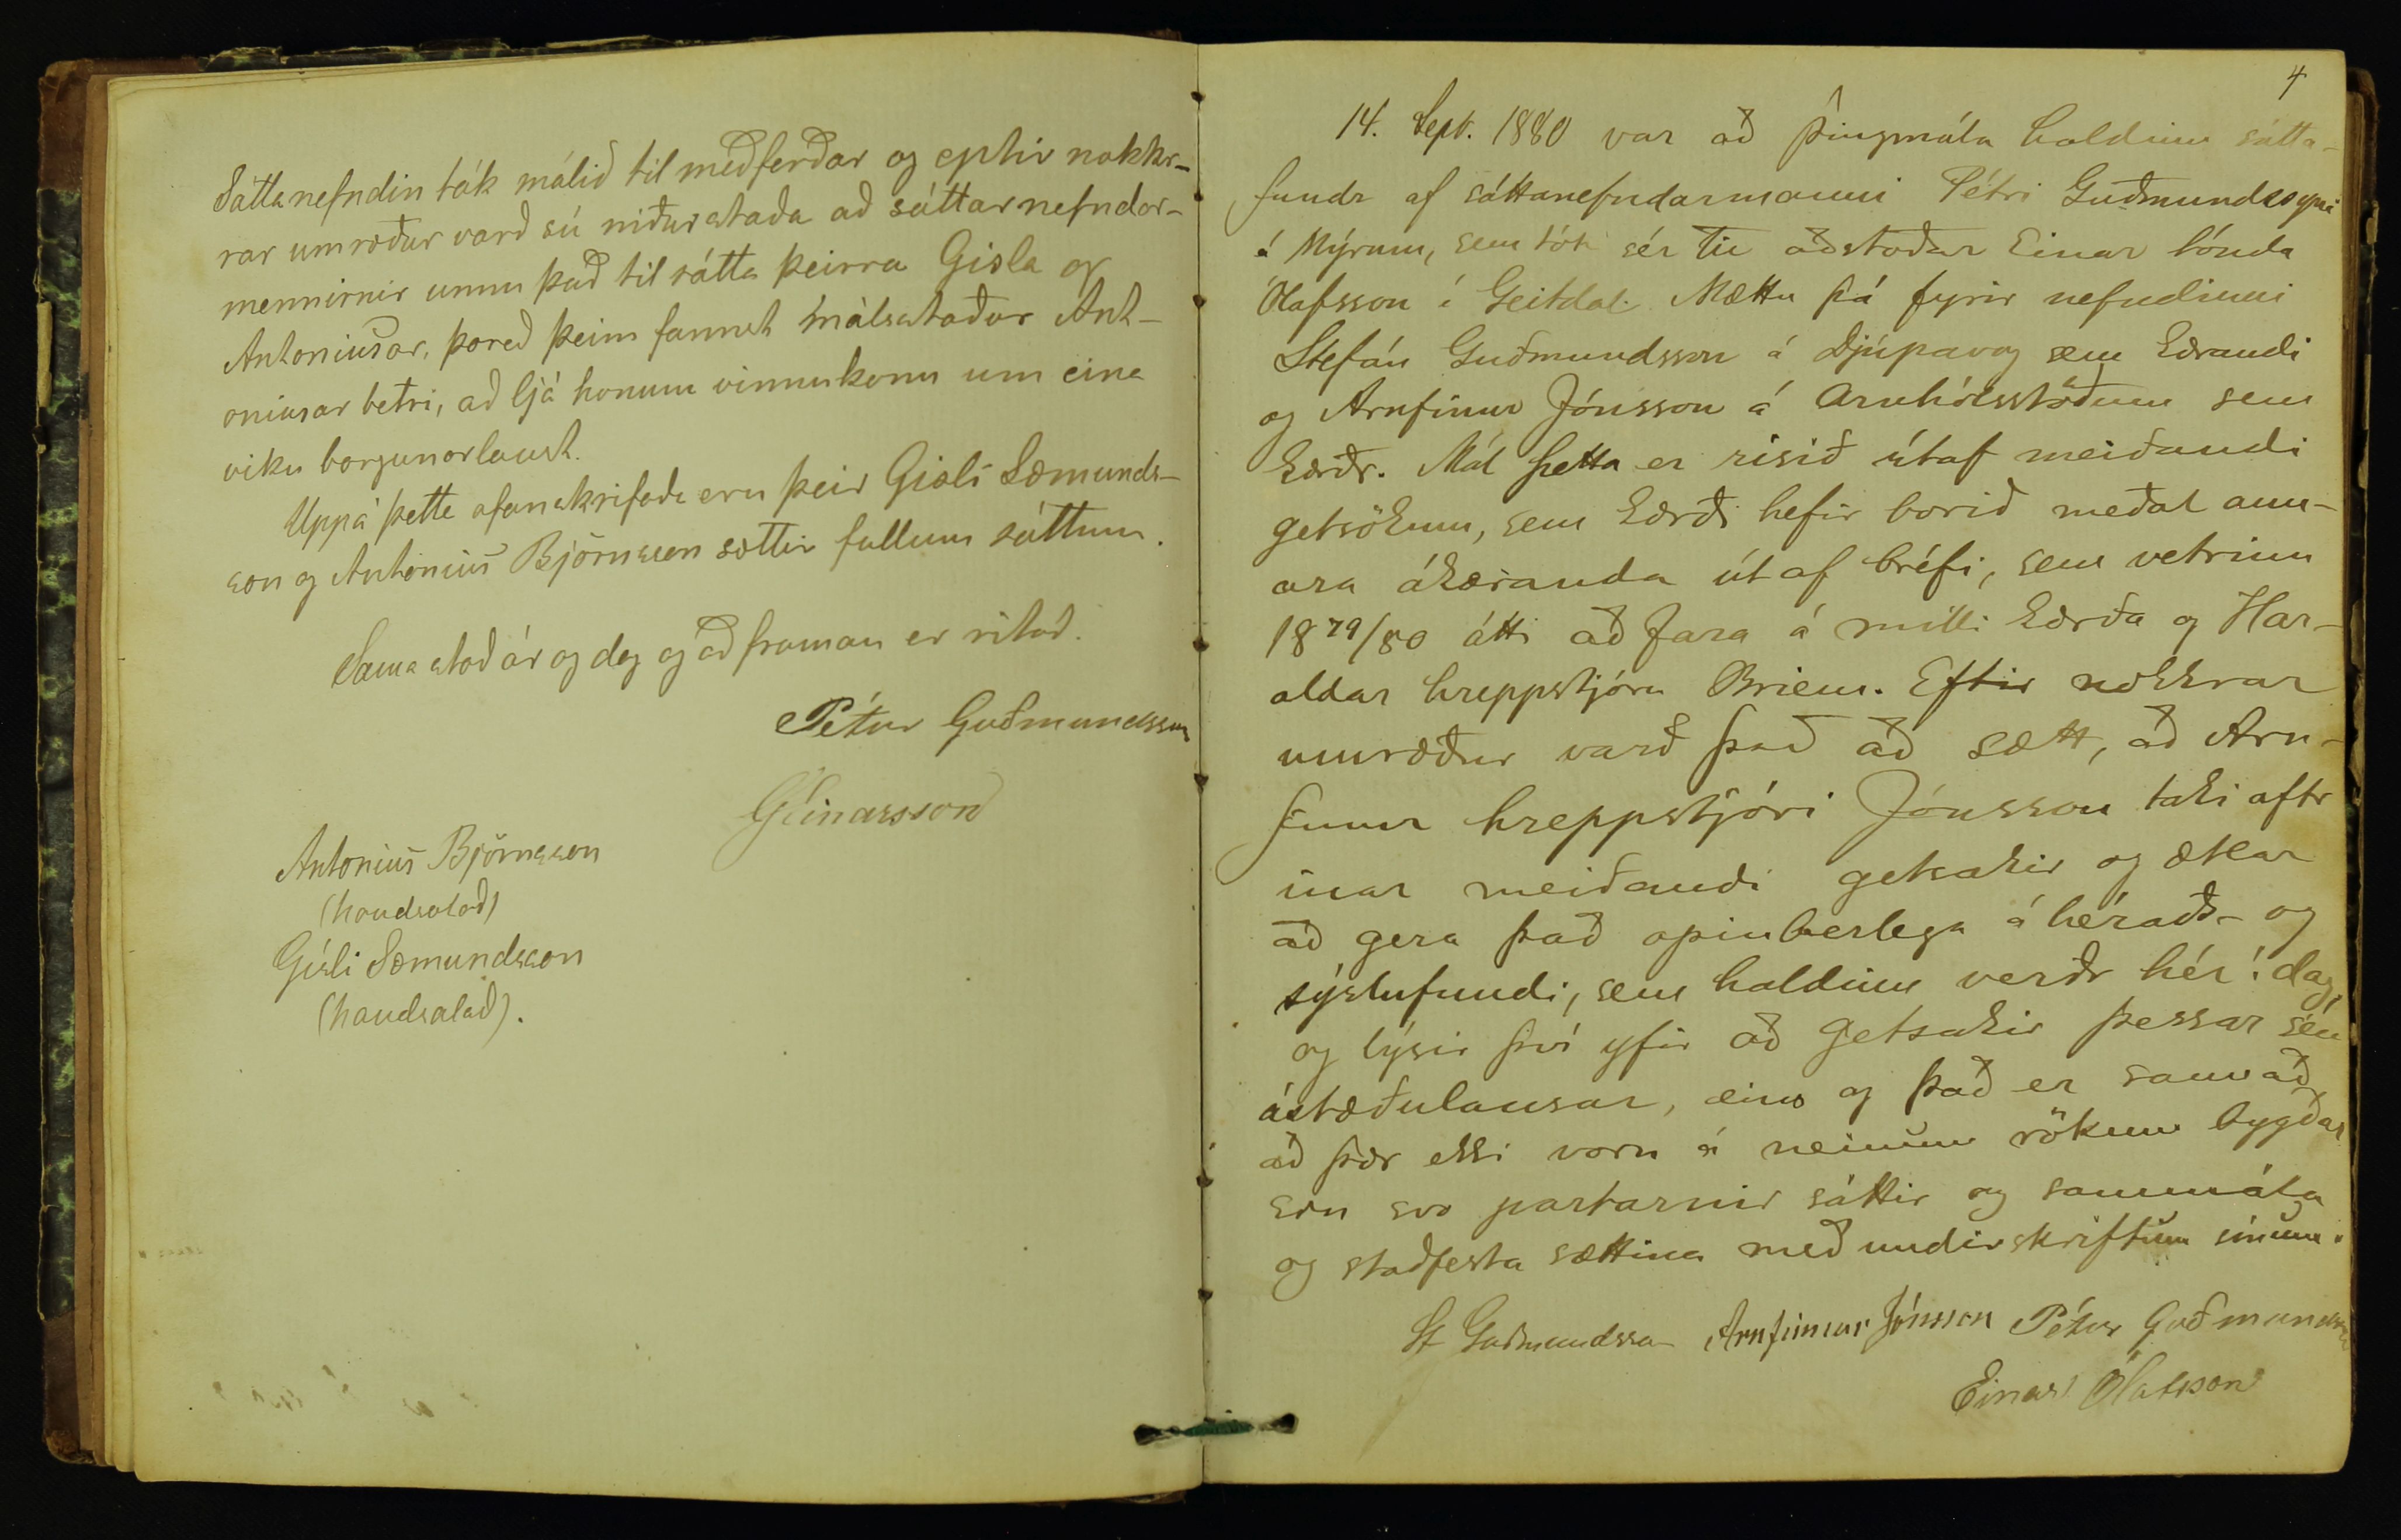 Sáttanefndin tók málið til meðferðar og eptir nokkr-
rar umræður varð sú niðurstaða að sáttarnefndar-
mennirnir unnu það til sátta þeirra Gisla og
Antoniusar, þareð þeim fannst málsstaður Ant-
oniusar betri, að ljá honum vinnukonu um eina
viku borgunarlaust.
Uppá þetta ofanskrifaða eru þeir Gisli Sæmunds-
son og Antonius Björnsson sættir fullum sáttum.
Sama stað ár og dag og að framan er ritað.
Pétur Guðmundsson
G Einarsson
Antonius Björnsson
(handsalað)
Gísli Sæmundsson
(handsalað).
4
14. Sept. 1880 var að Þingmúla haldinn sátta-
fundr af sáttanefndarmanni Pétri Guðmundssyni
á Mýrum, sem tók sér til aðstoðar Einar bónda
Ólafsson í Geitdal. Mættu þá fyrir nefndinni
Stefán Guðmundsson á Djúpavog sem kærandi
og Arnfinnr Jónsson á Arnhólsstöðum sem
kærðr. Mál þetta er risið útaf meiðandi
getsökum, sem kærði hefir borið meðal ann-
ara ákæranda út af bréfi, sem vetrinn
1879/80 átti að fara á milli kærða og Har-
aldar hreppstjóra Briem. Eftir nokkrar
umræður varð það að sætt, að Arn-
finnr hreppstjóri Jónsson taki aftr
inar meiðandi getsakir og ætlar
að gera það opinberlega á héraðs- og
sýslufundi, sem haldinn verðr hér í dag,
og lýsir því yfir að getsakir þessar séu
ástæðulausar, eins og það er samað
að þær ekki voru á neinum rökum bygðar
Eru svo partarnir sáttir og sammála
og staðfesta sættina með undirskriftum sínum.
St Guðmundsson Arnfinnur Jónsson Pétur Guðmundsson
Einar Ólafsson